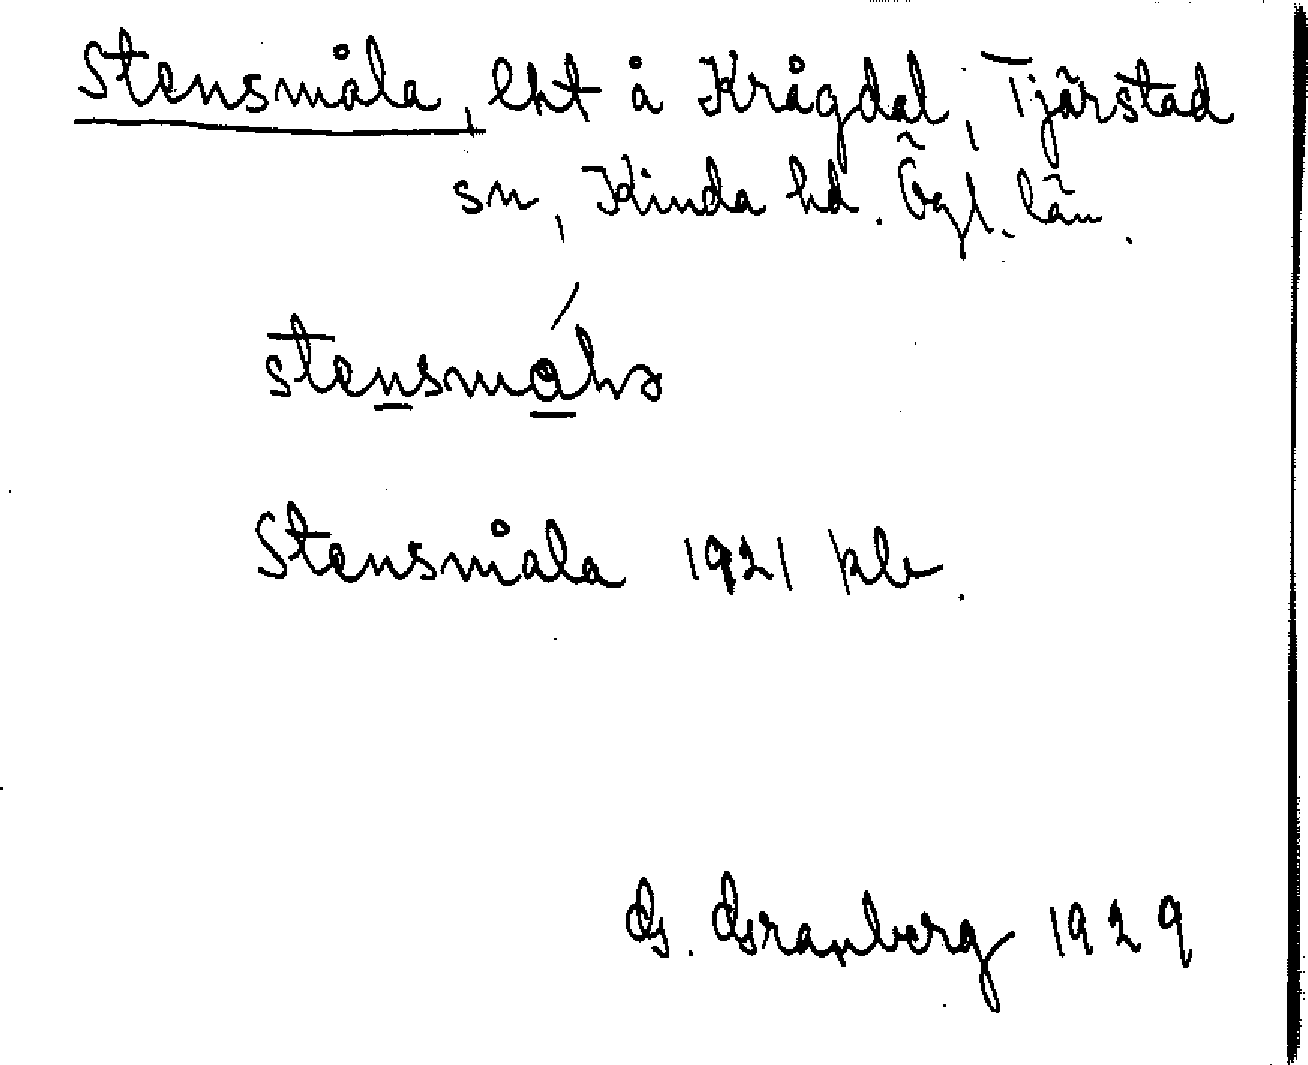 Stensmåla, lht å Krågdal, Tjärstad
sn, Kinda hd. Ögl. län.
Stensmåla 1921 klv.
G. Granberg 1929